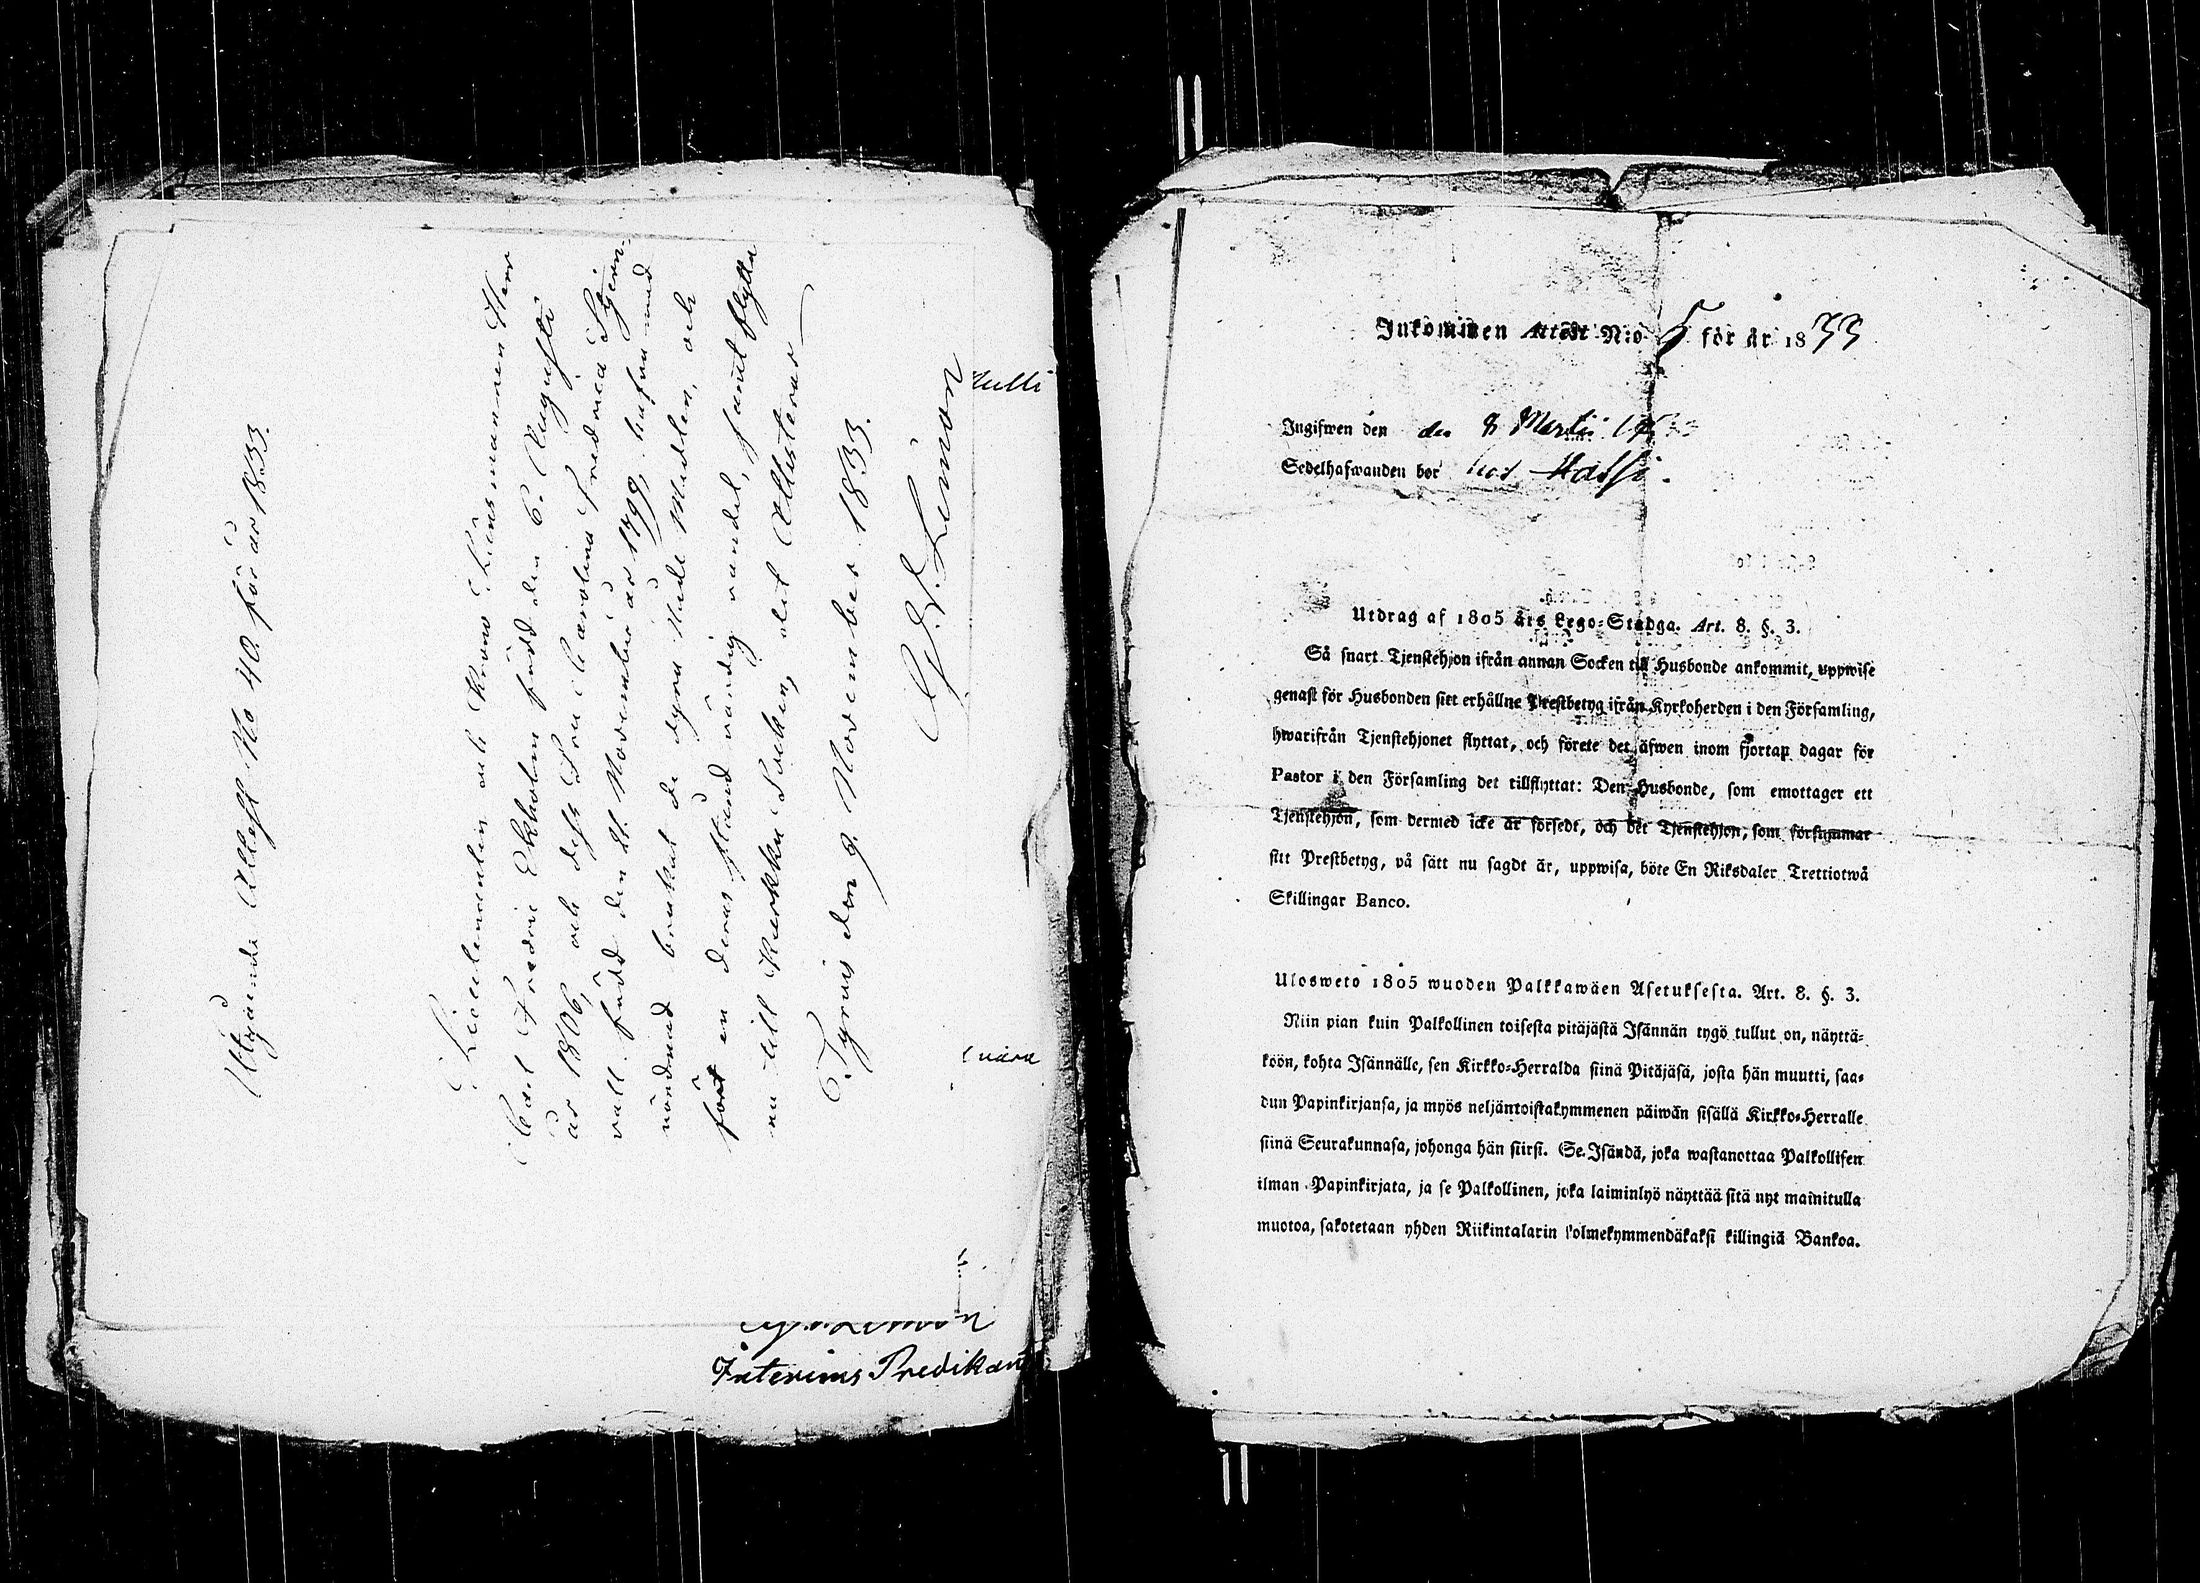 Utgående Attest No 40 för år 1833.
Lieutenanten och Krono Länsmannen Herr
Carl Fredric Ekholm född den 6. Augusti
år 1806, och dess Fru Carolina Fredrica Stjern-
vall född den 21. November år 1799, hafva med
nöjd brukat de dyra Nåde Medlen, och
fört en deras stånd värdig vandel, samt flytta
nu till Kurkku Socken, det Attesterar
Tyrvis den 9. November 1833.
G. F. Liman
Interims Predikant
Inkommen Attest N:o 5 för år 1833
Ingifwen den den 8 Martii 1833
Sedelhafwanden bor hos Hassi.
Utdrag af 1805 års Lego-Stadga. Art. 8. §. 3.
Så snart Tjenstehjon ifrån annan Socken till Husbonde ankommit, uppwise
genast för Husbonden sitt erhållne Prestbetyg ifrån Kyrkoherden i den Församling,
hwarifrån Tjenstehjonet flyttat, och förete det äfwen inom fjortan dagar för
Pastor i den Församling det tillflyttat: Den Husbonde, som emottager ett
Tjenstehjon, som dermed icke är försedt, och det Tjenstehjon, som försummar
sitt Prestbetyg, på sätt nu sagdt är, uppwisa, böte En Riksdaler Trettiotwå
Skillingar Banco.
Ulosweto 1805 wuoden Palkkawäen Asetuksesta. Art. 8. §. 3.
Niin pian kuin Palkollinen toisesta pitäjästä Isännän tygö tullut on, näyttä-
köön, kohta Isännälle, sen Kirkko-Herralda siinä Pitäjäsä, josta hän muutti, saa-
dun Papinkirjansa, ja myös neljäntoistakymmenen päiwän sisällä Kirkko-Herralle
siinä Seurakunnasa, johonga hän siirsi. Se Isändä, joka wastanottaa Palkollisen
ilman Papinkirjata, ja se Palkollinen, joka laiminlyö näyttää sitä nyt mainitulla
muotoa, sakotetaan yhden Riikintalarin kolmekymmendäkaksi killingiä Bankoa.